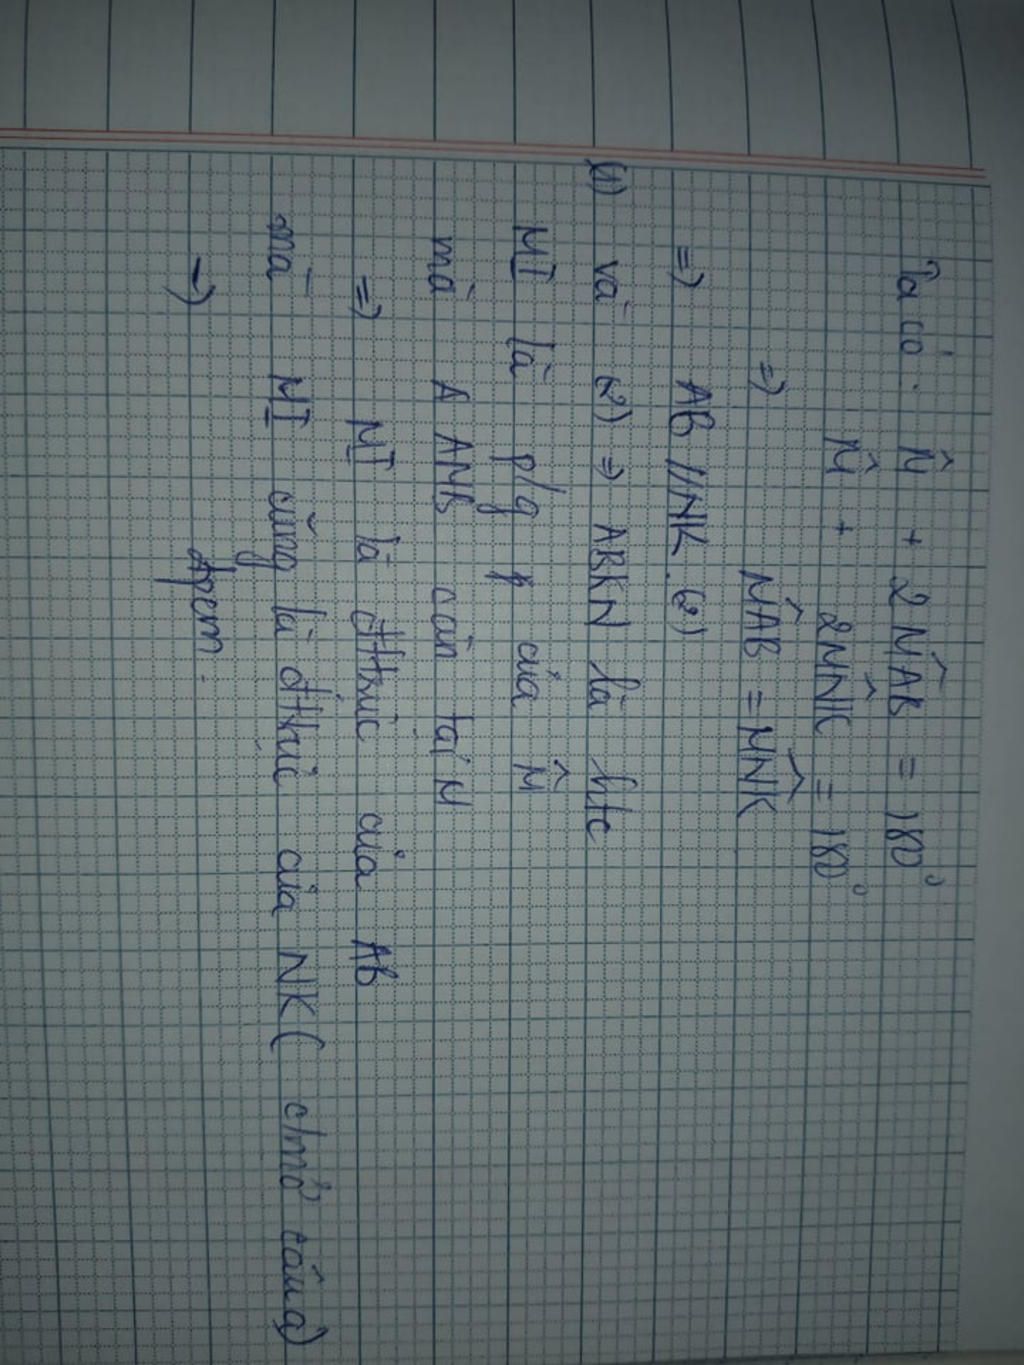 Ta có: M̂ + 2 M̂AB = 180°
M̂ + 2M̂NK = 180°
=) M̂AB = M̂NK
=) AB // NK. (2)
(1) và (2) => ABKN là htc
MI là p/g của M̂
mà Δ AMB cân tại M
=) MI là đ/trực của AB
mà MI cũng là đ/trực của NK ( c/m ở câu a)
→) đpcm.